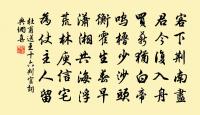 客下荆南盡
君今復入舟
買薪猶白帝
鳴櫓少沙頭
衡霍生春早
瀟湘共海浮
荒林庾信宅
為仗主人留
杜甫送王十六判官詞
典網